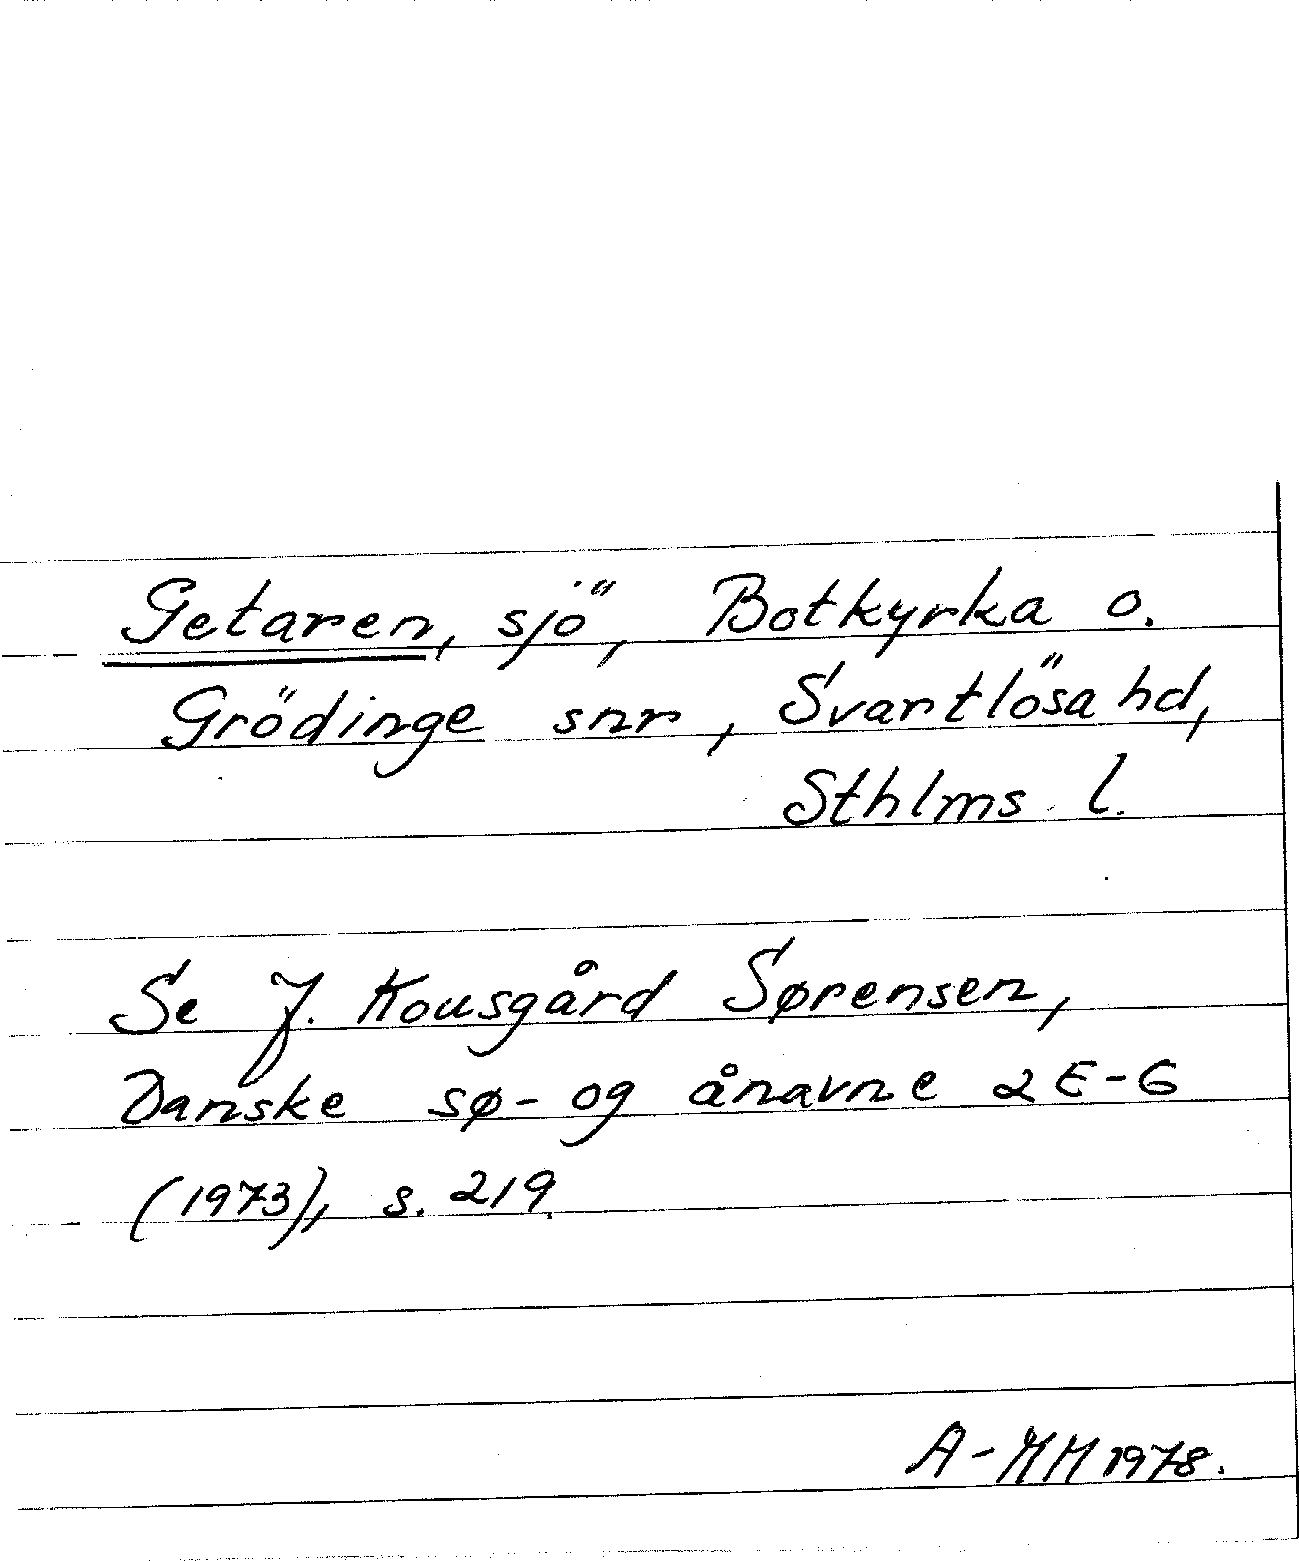 Getaren, sjö, Botkyrka o.
Grödinge snr, Svartlösa hd,
Sthlms l.
Se J. Kousgård Sørensen,
Danske sø- og ånavne 2 E-G
(1973), s. 219.
A-MM 1978.